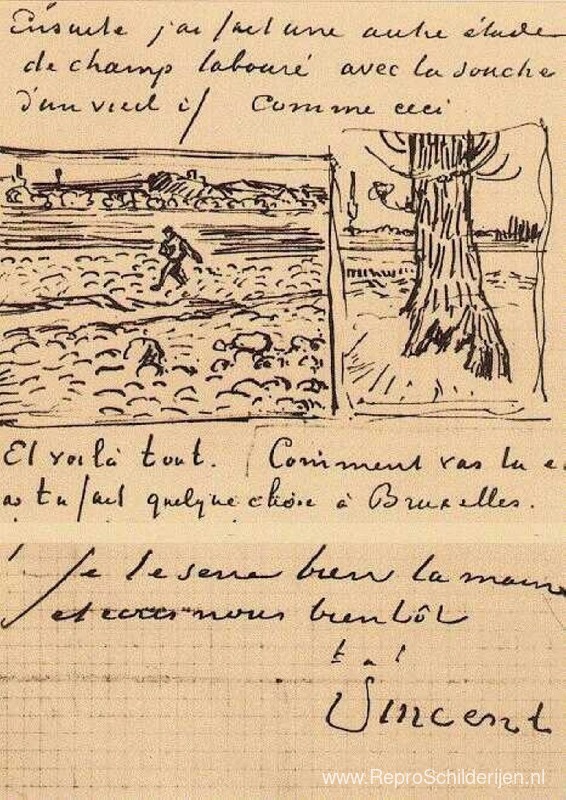 Ensuite j'ai fait une autre étude
de champ labouré avec la souche
d'un vieil if comme ceci
Et voilà tout. Comment vas tu e
as tu fait quelque chose à Bruxelles.
Je te serre bien la main
et écris nous bientôt
t. à t.
Vincent
www.ReproSchilderijen.nl